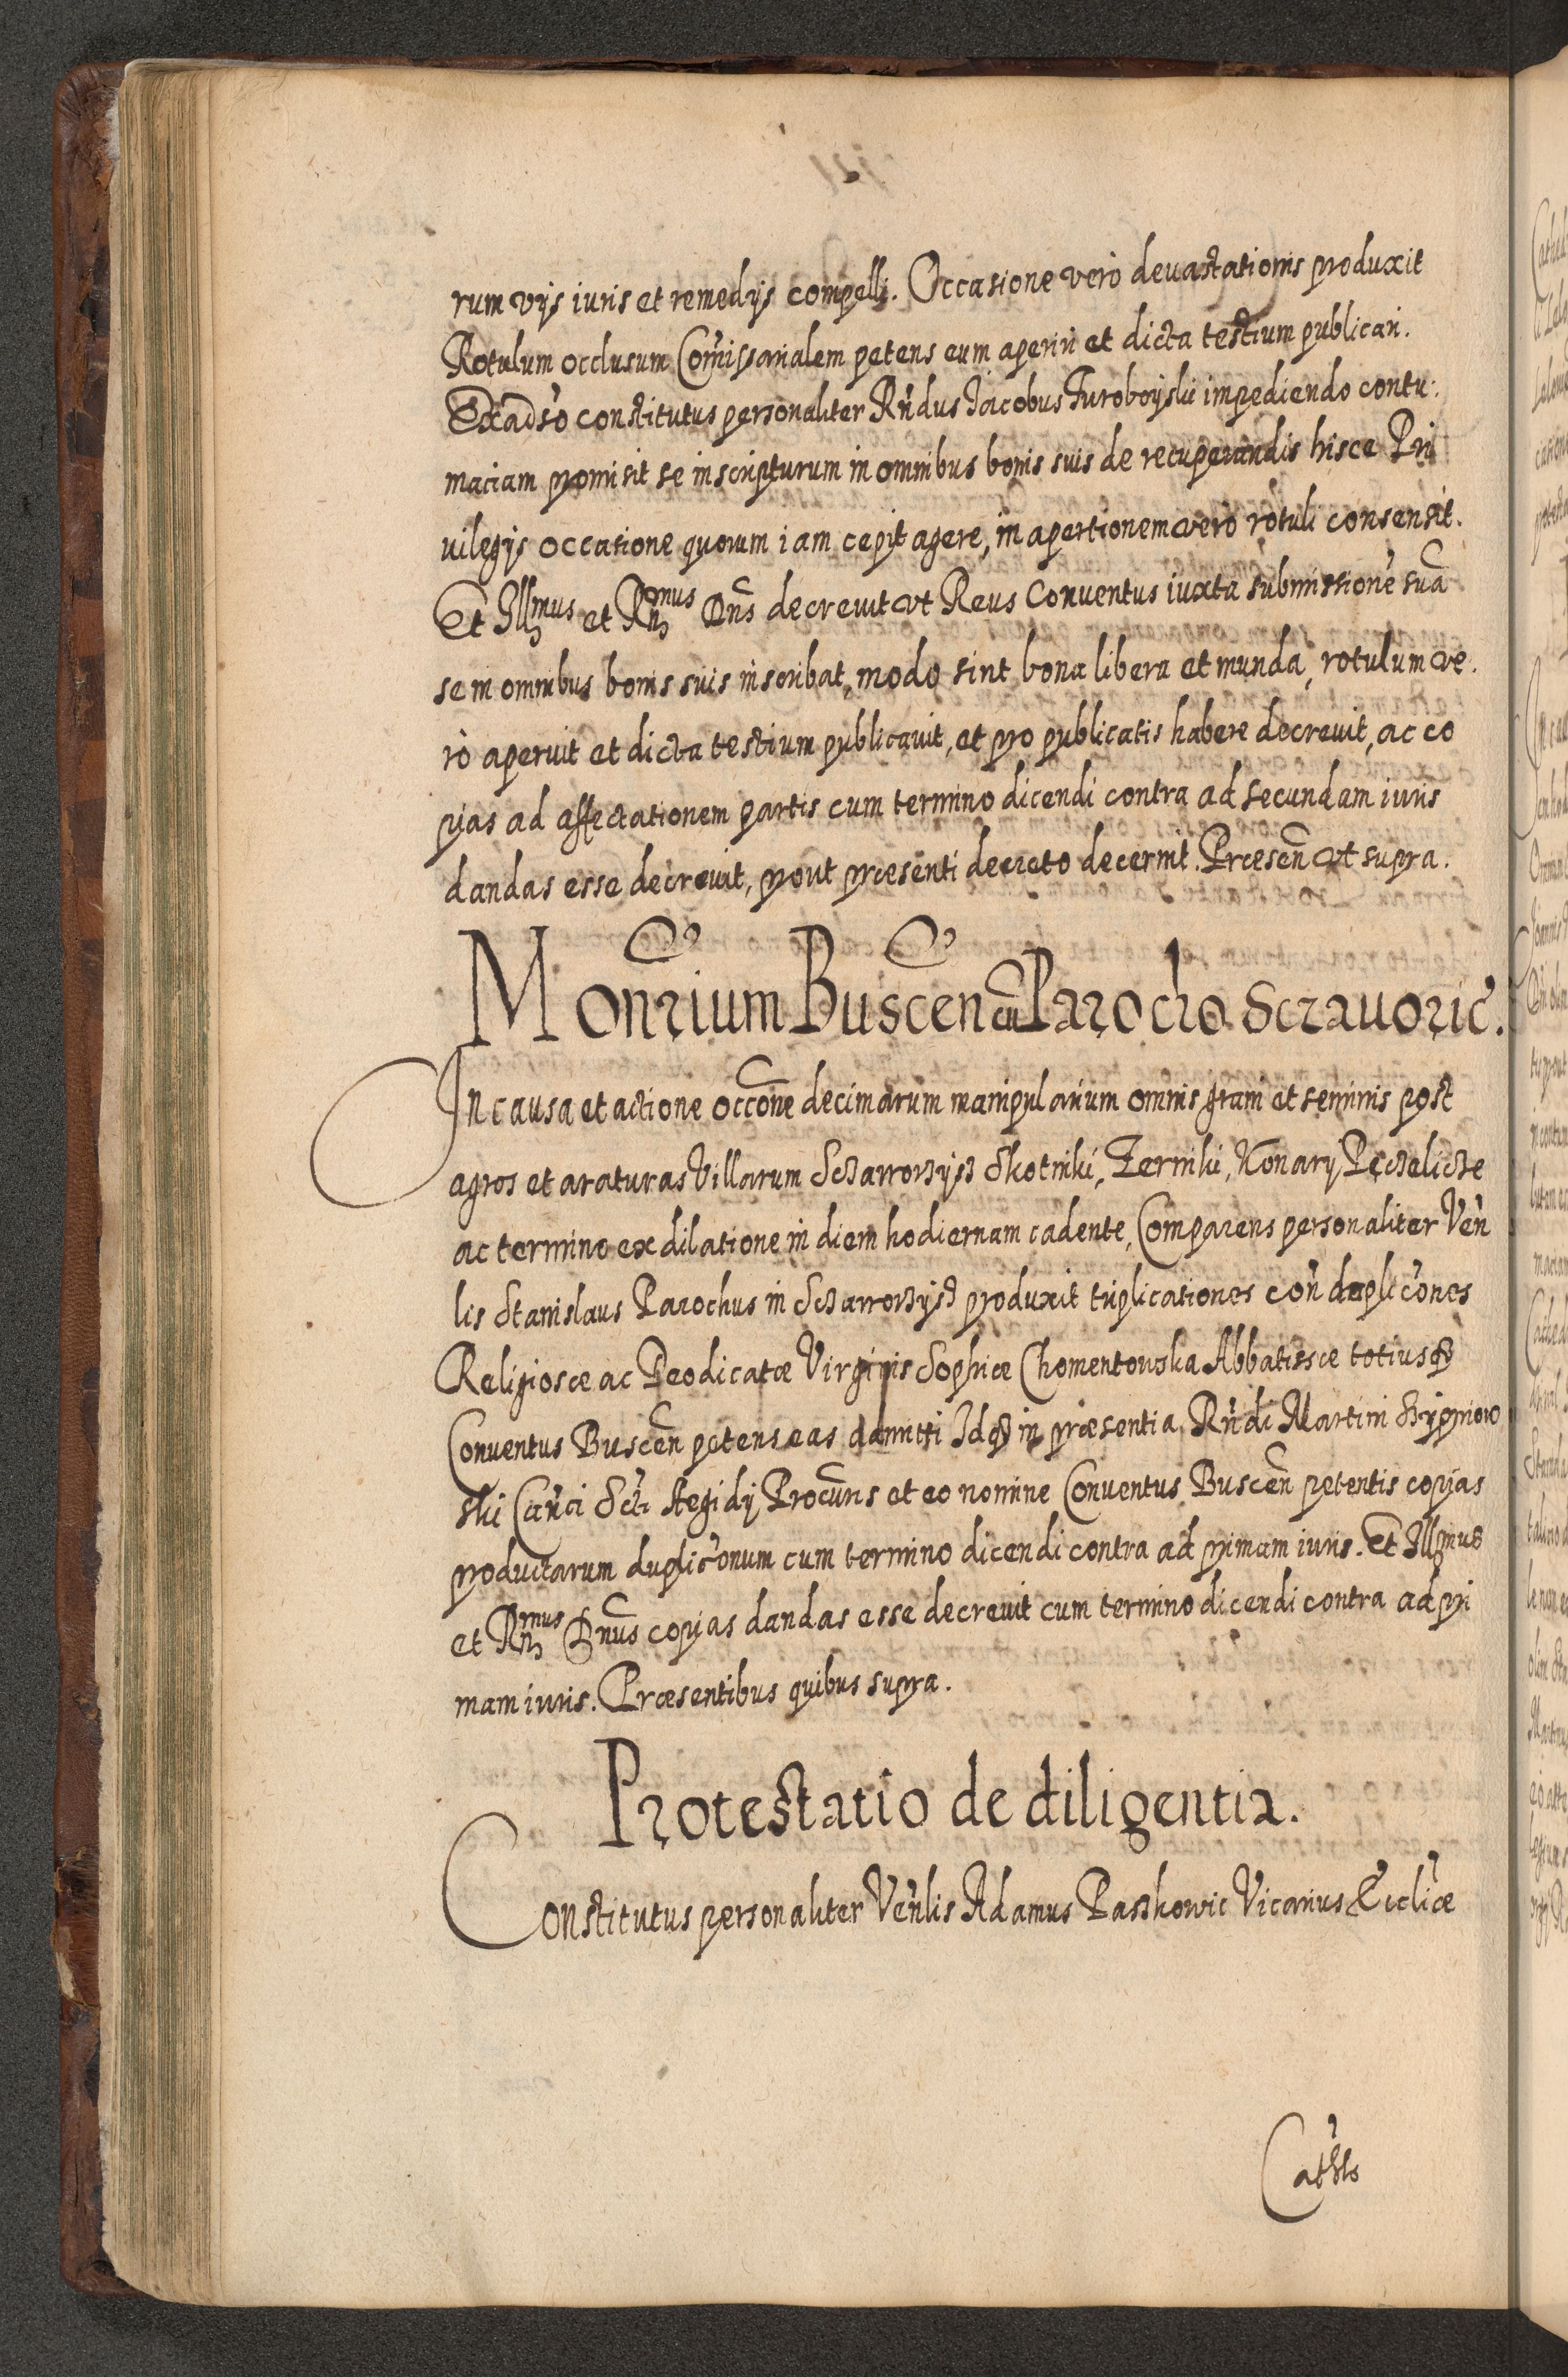 rum vijs iuris et remedijs compelli. Occasione verò deuastationis produxit
Rotulum occlusum Com̃issarialem petens eum aperiri et dicta testium publicari.
Ex adso constitutus personaliter Rñdus Jacobus Turoboyski impediendo contu:
maciam promisit se inscripturum in omnibus bonis suis de recuperandis hisce Pri
uilegijs occasione quorum iam cepit agere, in apertionem verò rotuli consensit.
Et Illmus et Rñmus Dns decreuit vt Reus Conuentus iuxta submissione sua
se in omnibus bonis suis inscribat, modo sint bona libera et munda, rotulum ve.
rò aperuit et dicta testium publicauit, et pro publicatis habere decreuit, ac co
pias ad affectationem partis cum termino dicendi contra ad secundam iuris
dandas esse decreuit, prout præsenti decreto decernit. Præsen vt supra.
Monrium Buscen cu Parocho Scravoric.
In causa et actione occone decimarum manipularium omnis grani et seminis post
agros et araturas Villarum Skotniki, Zerniki, Konary
ac termino ex dilatione in diem hodiernam cadente, Comparens personaliter Ven
lis Stanislaus Parochus in produxit triplicationes con duplicones
Religiosæ ac Deodicatæ Virginis Sophiæ Chomentowska Abbatissæ totiusq
Conuentus Buscen petens eas admitti Idq in præsentia Rñdi Martini
ski Canci Scti Aegidij Procuris et eo nomine Conuentus Buscen petentis copias
productarum dupliconum cum termino dicendi contra ad primam iuris. Et Illmus
et Rñmus Dnus copias dandas esse decreuit cum termino dicendi contra ad pri
mam iuris. Præsentibus quibus supra.
Protestatio de diligentia.
Constitutus personaliter Venlis Adamus Passkowic Vicarius Ecclicæ
Cathls